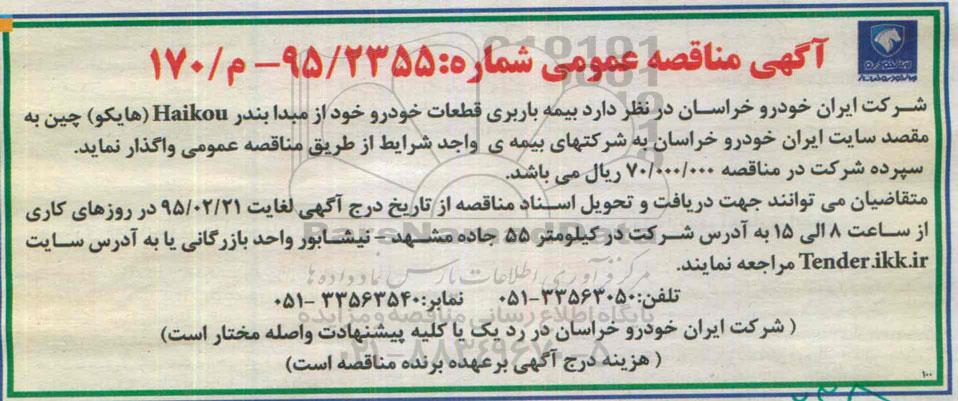 آگهی مناقصه عمومی شماره:۹۵/۲۳۵۵- م/۱۷۰
شرکت ایران خودرو خراسان در نظر دارد بیمه باربری قطعات خودرو خود از مبدا بندر Haikou (هایکو) چین به
مقصد سایت ایران خودرو خراسان به شرکتهای بیمه ی واجد شرایط از طریق مناقصه عمومی واگذار نماید.
سپرده شرکت در مناقصه ۷۰/۰۰۰/۰۰۰ ریال می باشد.
متقاضیان می توانند جهت دریافت و تحویل اسناد مناقصه از تاریخ درج آگهی لغایت ۹۵/۰۲/۲۱ در روزهای کاری
از ساعت ۸ الی ۱۵ به آدرس شرکت در کیلومتر ۵۵ جاده مشهد - نیشابور واحد بازرگانی یا به آدرس سایت
Tender.ikk.ir مراجعه نمایند.
تلفن:۳۳۵۶۳۰۵۰-۰۵۱ نمابر:۳۳۵۶۳۵۴۰ -۰۵۱
( شرکت ایران خودرو خراسان در رد یک یا کلیه پیشنهادت واصله مختار است)
( هزینه درج آگهی برعهده برنده مناقصه است)
۱۰۰
ParsNamadData
مرکز فرآوری اطلاعات پارس نماد داده ها
پایگاه اطلاع رسانی مناقصه و مزایده